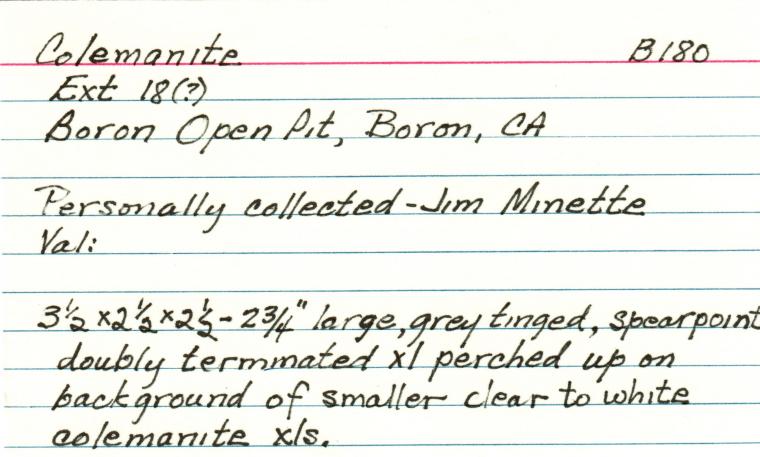 Colemanite B180
Ext 18(?)
Boron Open Pit, Boron, CA
Personally collected - Jim Minette
Val:
3½ x 2½ x 2½ - 2¾" large, grey tinged, spearpoint
doubly terminated xl perched up on
background of smaller clear to white
colemanite xls.